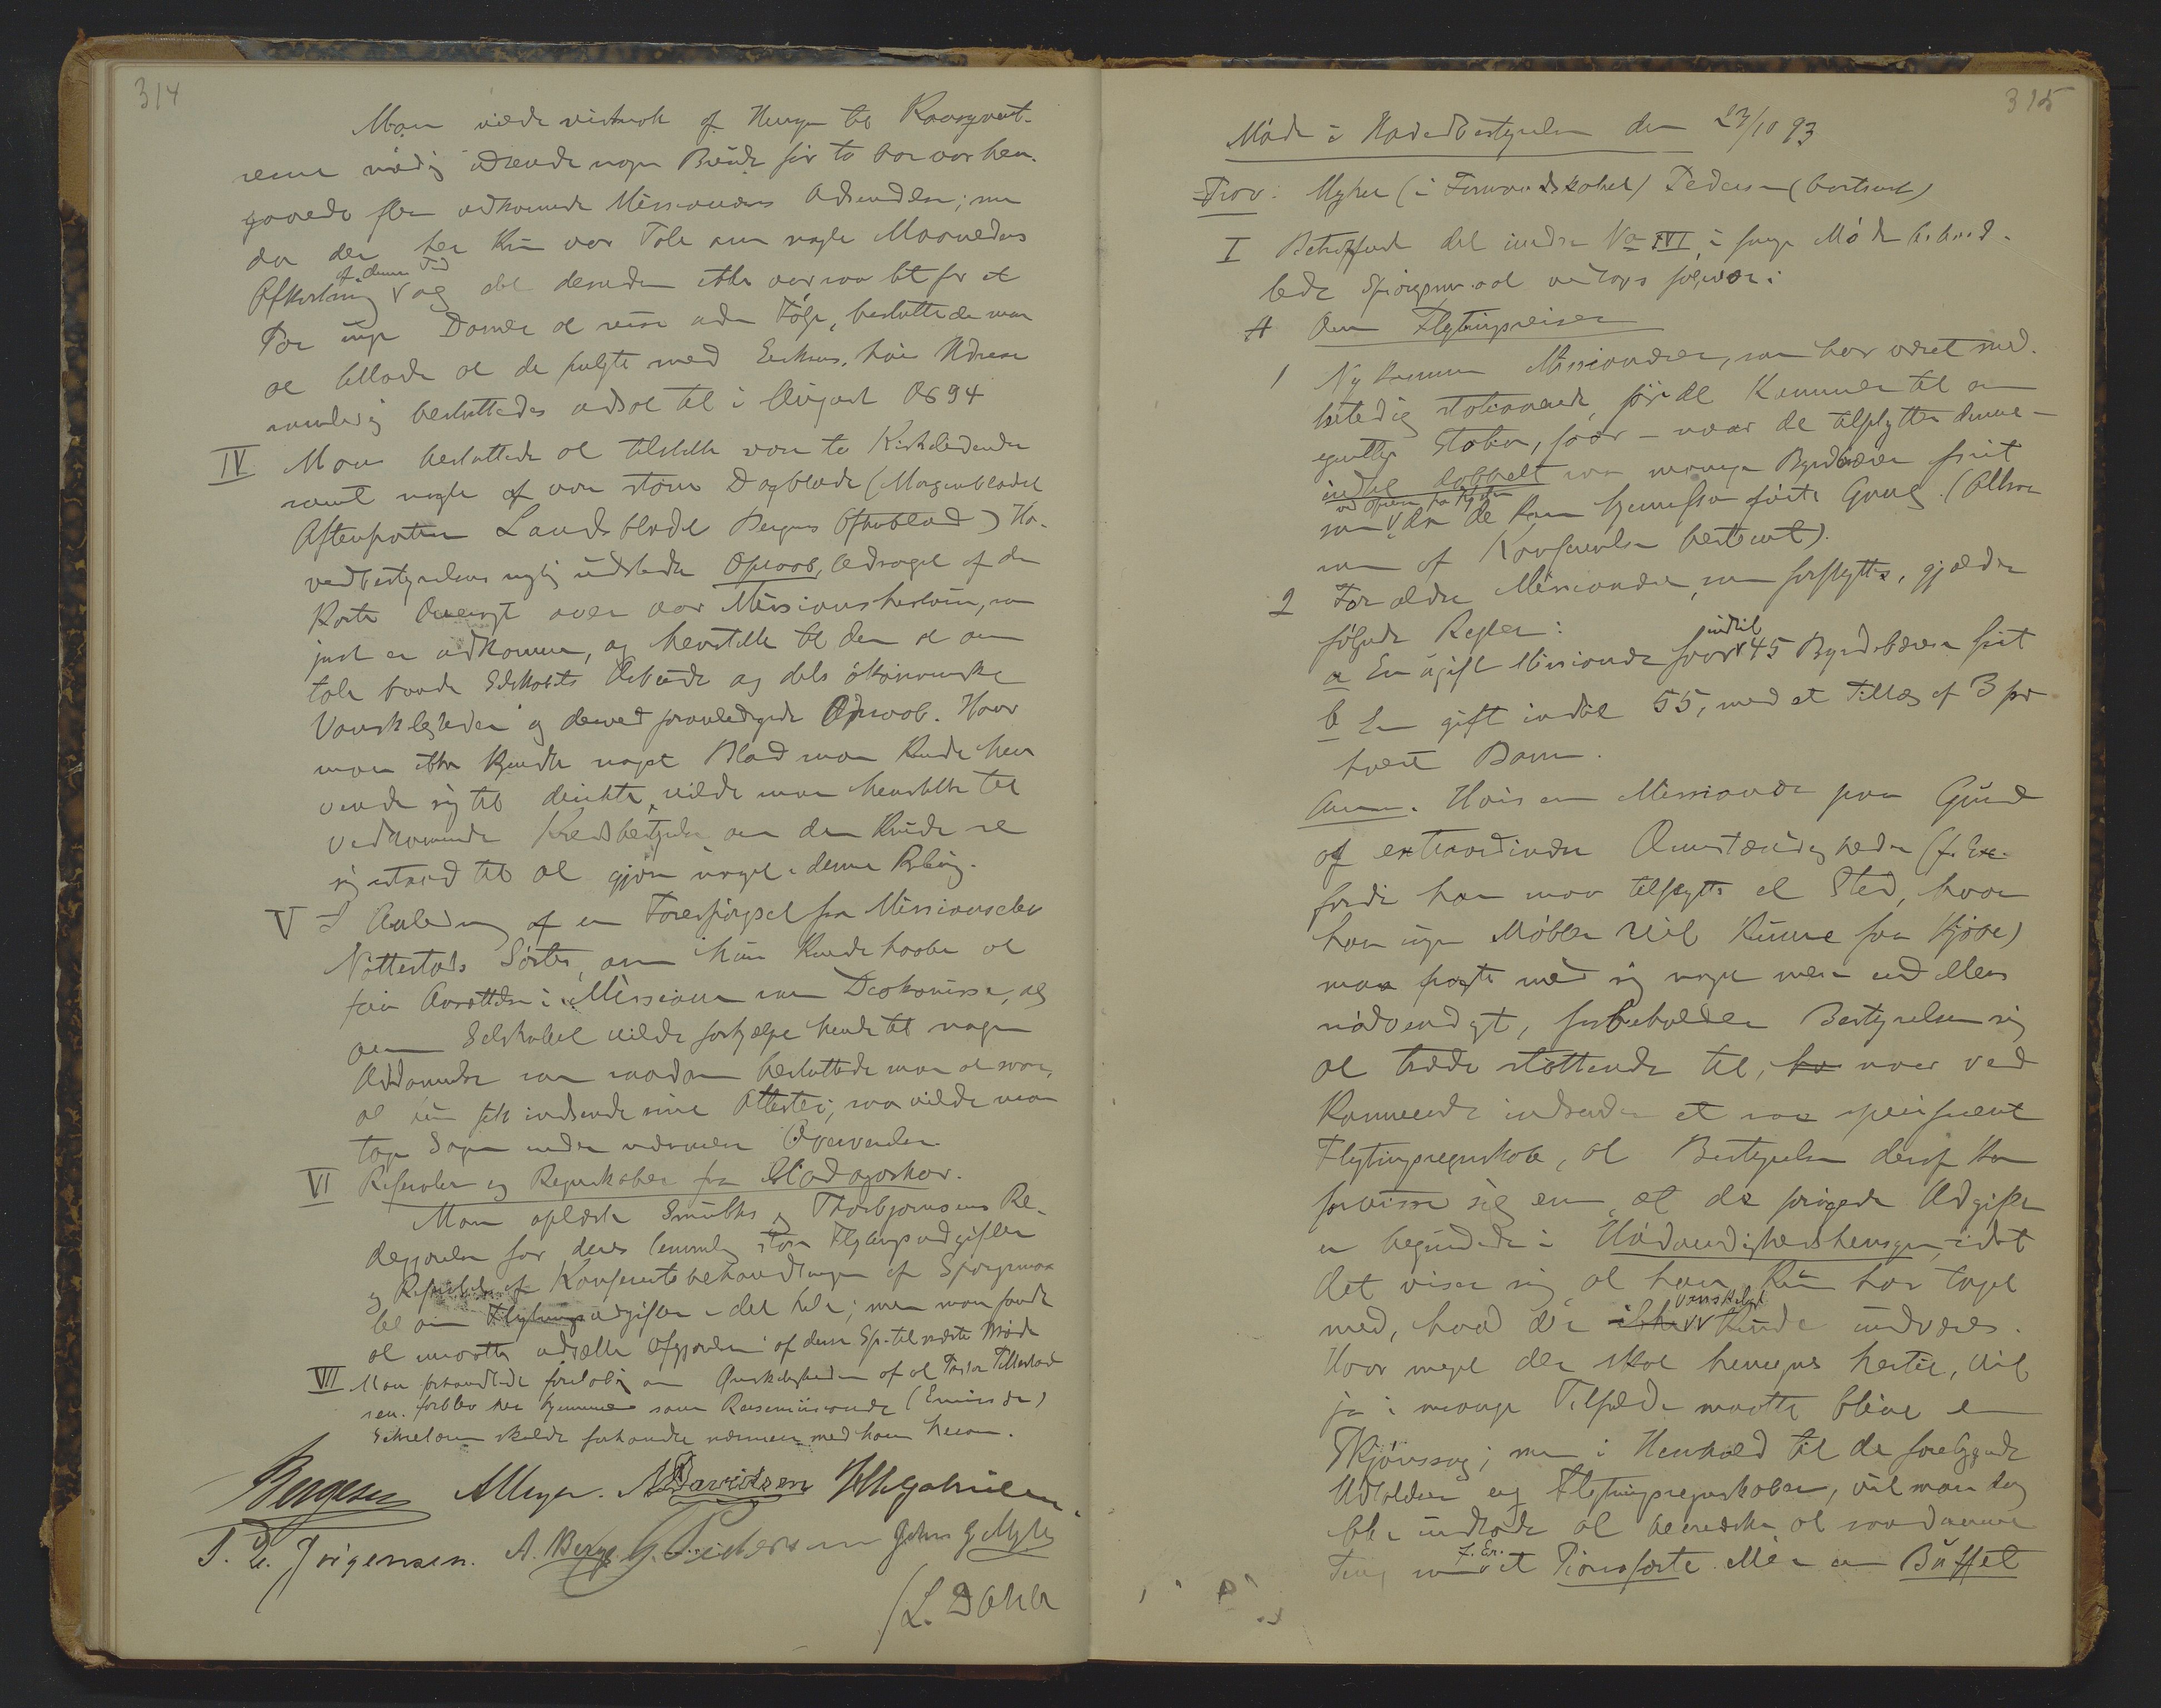 314
Man vilde vistnok af Hensyn til Kasus
nødig udsende nogen Brude før to Aar var hen-
gaaede efter vedkommende Missionærs Udsendelse; men
da der her kun var Tale om nogle Maaneders
af denne Tid
Afkortning og det desuden ikke var saa let for et
Par unge Damer at reise uden Følge, besluttede man
at tillade at de fulgte med Eriksens, hvis Udreise
nemlig besluttedes udsat til i August 1894
IV Man besluttede at tilstille vore to Kirketidender
samt nogle af vore større Dagblade (Morgenbladet
Aftenposten Landsbladet Bergens Aftenblad) Ho-
vedbestyrelsens nylig udstedte Opraab, ledsaget af den
korte Oversigt over vor Missions historie, som
just er udkommen, og henstille til dem at om
tale baade Selskabets Arbeide og dets økonomiske
Vanskeligheder og derved foranledigede Opraab. Hvor
man ikke kjendte noget Blad man kunde hen
vende sig til direkte, vilde man henstille til
vedkommende Kredsbestyrelse om den kunde se
sig istand til at gjøre noget i denne Retning.
V I Anledning af en Forespørgsel fra Missionselev
Nøttestads Søster, om hun kunde haabe at
faa Ansættelse i Missionen som Diakonisse, og
om Selskabet vilde forhjælpe hende til nogen
Uddannelse som saadan besluttede man at svare,
at hun fik indsende sine Attester, saa vilde man
tage Sagen under nærmere Overveielse.
VI Referater og Regnskaber fra Madagaskar.
Man oplæste Smiths og Thorbjørnsens Re-
degjørelse for deres temmelig store Flytningsudgifter
og Referatet af Konferentsbehandlingen af Spørgsmaa
let om Flytningsudgifter i det hele; men man fandt
at maatte udsætte Afgjørelsen af dette Sp. til næste Møde
VII Man forhandlede foreløbig om Ønskeligheden af at Pastor Tillestad
sen. forblev her hjemme som Reisemissionær (Emissær)
Sekretæren skulde forhandle nærmere med ham herom.
Borgesen AMeyer. NDavidsen HMGabrielsen.
T. C. Jørgensen. A. Berge. G. Pedersen John G Myhre
/L. Dahle
315
Møde i Hovedbestyrelsen den 23/10 93
Frav: Myhre (i Formandskabet) Pedersen (bortreist)
I Betræffende det under No VI i forrige Møde behand-
lede Spørgsmaal vedtoges følgende:
A Om Flytningsreiser
1 Nykomne Missionærer, som har været mid-
lertidig stationerede, før de kommer til sin
egentlige Station, faar – naar de tilflytter denne –
indtil dobbelt saa mange Byrdebærere frit
ved Opreisen fra Kysten
som den de kan hjemfra første Gang. (Altsaa
som af Konferentsen bestemt).
2 For ældre Missionærer, som forflyttes, gjælder
følgende Regler:
indtil
a En ugift Missionær faar 45 Byrdebærere frit
b En gift indtil 55, med et Tillæg af 3 for
hvert Barn.
Anm. Hvis en Missionær paa Grund
af extraordinære Omstændigheder (f. Ex.
fordi han maa tilflytte et Sted, hvor
han ingen Møbler vil kunne faa kjøbe)
maa fragte med sig noget mere end ellers
nødvendigt, forbeholder Bestyrelsen sig
at træde støttende til, naar ved
kommende indsender et saa specificeret
Flytningsregnskab, at Bestyrelsen deraf kan
forvisse sig om, at de forøgede Udgifter
er begrundede i Nødvendighedshensyn, idet
det viser sig at han kun har taget
vanskelig
med, hvad der kunde undværes.
Hvor meget der skal henregnes hertil, vil
jo i mange Tilfælde maatte blive en
Skjønssag; men i Henhold til de foreliggende
Udtalelser og Flytningsregnskaber, vil man dog
ikke undlade at bemærke at saadanne
f. Ex.
Ting som et Pianoforte eller en Buffet